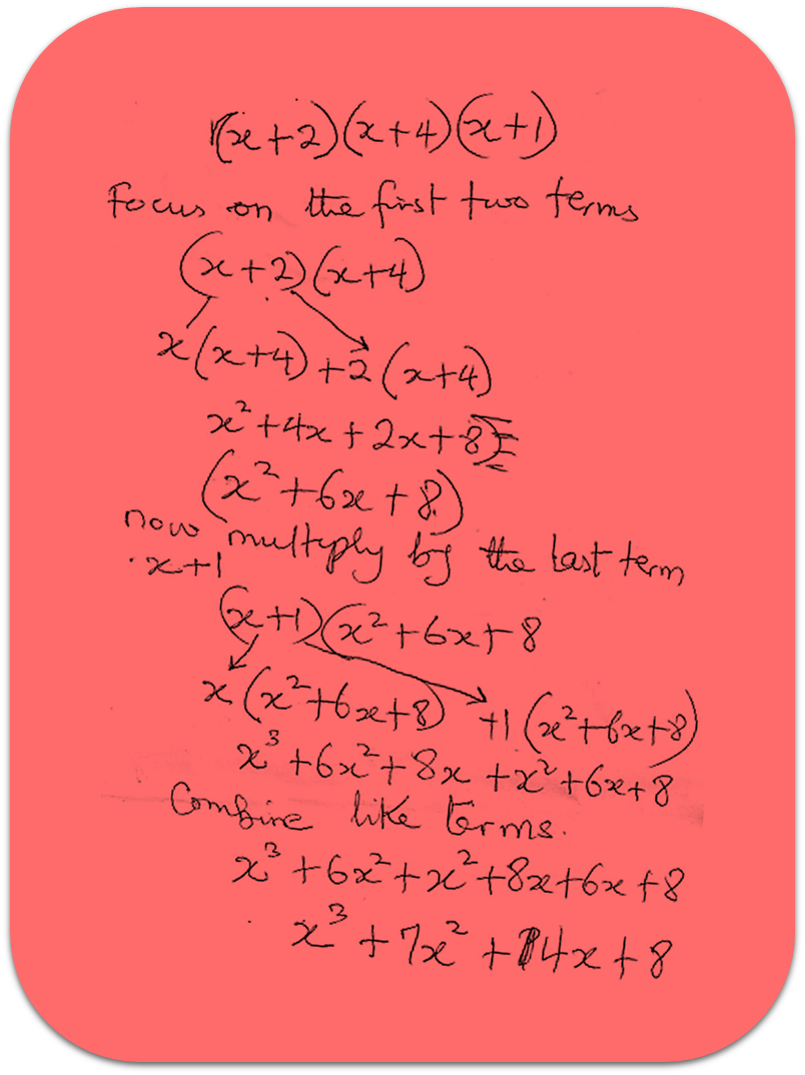 (x+2)(x+4)(x+1)
Focus on the first two terms
(x+2)(x+4)
x(x+4)+2(x+4)
x²+4x+2x+8)
(x²+6x+8)
now multiply by the last term
x+1
(x+1)(x²+6x+8
x(x²+6x+8) +1(x²+6x+8)
x³+6x²+8x+x²+6x+8
Combine like terms.
x³+6x²+x²+8x+6x+8
x³+7x²+14x+8